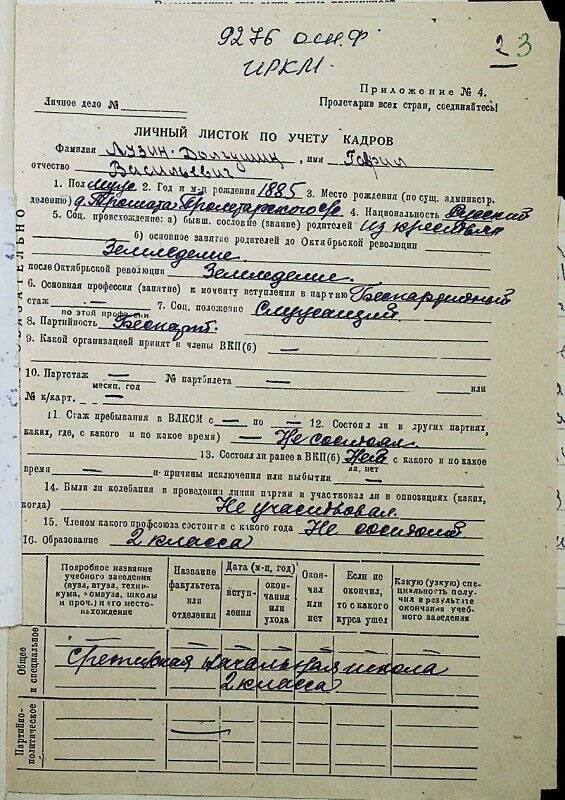 9276 осн.ф
ИРКМ
2 3
Приложение № 4.
Личное дело №
Пролетарии всех стран, соединяйтесь!
ЛИЧНЫЙ ЛИСТОК ПО УЧЕТУ КАДРОВ
Фамилия Лузин-Долгушин, имя Гаврил
отчество Васильевич
1. Пол муж 2. Год и м-ц рождения 1885 3. Место рождения (по сущ. администр.
делению) 4. Национальность Русский
5. Соц. происхождение: а) бывш. сословие (звание) родителей из крестьян
б) основное занятие родителей до Октябрьской революции
Земледелие
после Октябрьской революции Земледелие.
6. Основная профессия (занятие) к моменту вступления в партию Беспартийный
стаж — 7. Соц. положение Служащий
по этой профессии
8. Партийность Беспарт.
9. Какой организацией принят в члены ВКП(б) —
10. Партстаж — № партбилета — или
месяц, год
№ к/карт. —
11. Стаж пребывания в ВЛКСМ с — по — 12. Состоял ли в других партиях,
каких, где, с какого и по какое время) — Не состоял
13. Состоял ли ранее в ВКП(б) Нет с какого и по какое
да, нет
время — и причины исключения или выбытия —
14. Были ли колебания в проведении линии партии и участвовал ли в оппозициях (каких,
когда) Не участвовал.
15. Членом какого профсоюза состоит и с какого года Не состоит
16. Образование 2 класса
Подробное название учебного заведения (вуза, втуза, техникума, комвуза, школы и проч.) и его местонахождение
Название факультета или отделения
Дата (м-ц, год)
вступления
окончания или ухода
Окончил или нет
Если не окончил, то с какого курса ушел
Какую (узкую) специальность получил в результате окончания учебного заведения
Общее и специальное
начальная школа
2 класса
Партийно-политическое